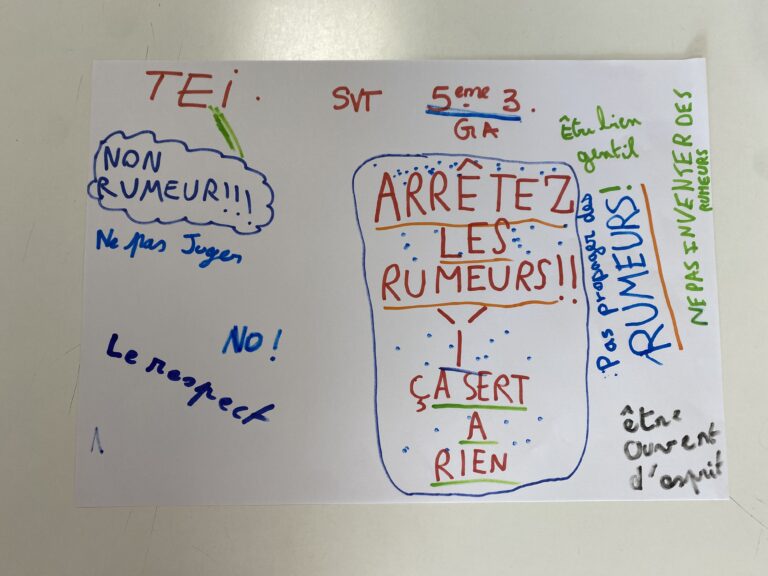 TEi.
SVT 5ème 3.
GA
NON
RUMEUR!!!
Ne pas Juger
NO!
Le respect
ARRÊTEZ
LES
RUMEURS!!
ÇA SERT
A
RIEN
Être bien
gentil
Pas propager des
RUMEURS!
NE PAS INVENTER DES
RUMEURS
être
ouvert
d'esprit